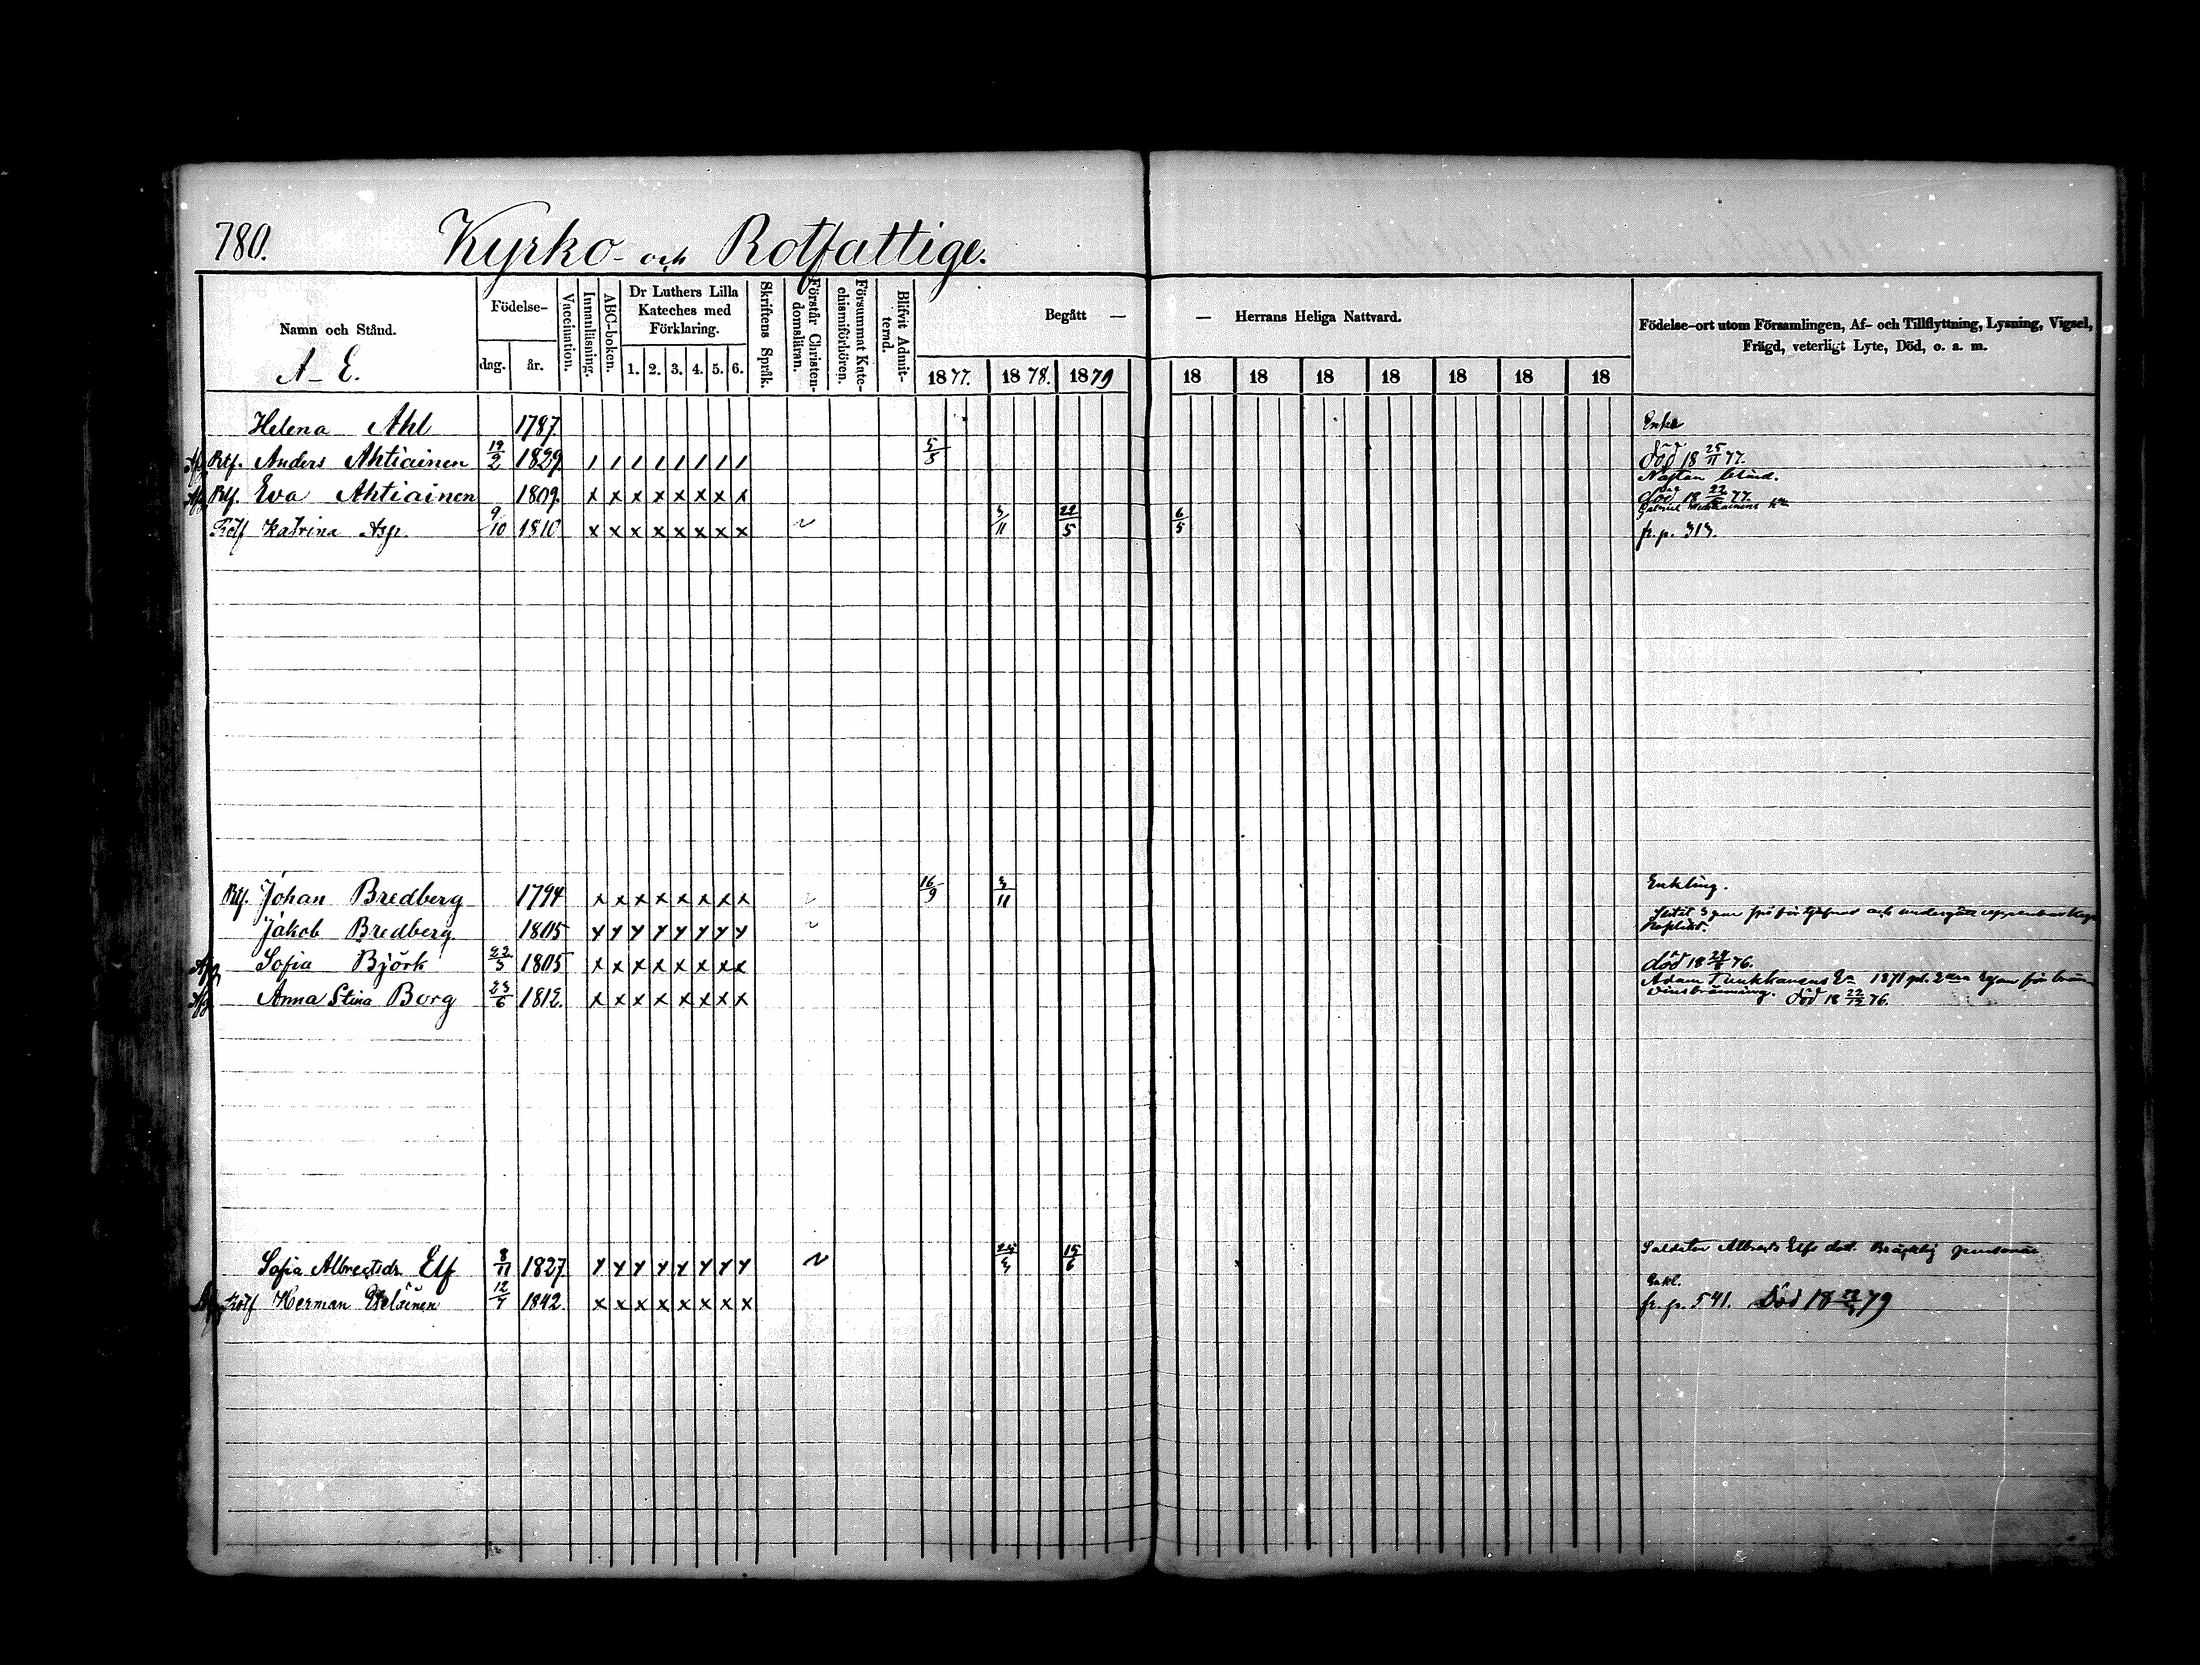 780. Kyrko- och Rotfattige.
Namn och Stånd.
A-E.
Födelse-
dag. år.
Vaccination.
Innanläsning.
ABC-boken.
Dr Luthers Lilla
Kateches med
Förklaring.
1. 2. 3. 4. 5. 6.
Skriftens Språk.
Förstår Christen-
domsläran.
Försummat Kate-
chismiförhören.
Blifvit Admit-
terad.
Begått — — Herrans Heliga Nattvard.
1877. 1878. 1879 18 18 18 18 18 18 18
Födelse-ort utom Församlingen, Af- och Tillflyttning, Lysning, Vigsel,
Frägd, veterligt Lyte, Död, o. a. m.
Helena Ahl 1787
Rtf. Anders Ahtiainen 19/2 1829 / / / / / / / / 5/5 död 18 25/11 77.
Nästan blind.
Rtf. Eva Ahtiainen 1809. x x x x x x x x död 18 77.
Katrina Asp. 9/10 1810 x x x x x x x x 3/11 22/5 6/5 fr. p. 313.
Rtf. Johan Bredberg 1794 x x x x x x x x 16/9 3/11 Enkling.
Jakob Bredberg. 1805 y y y y y y y y
Sofia Björk 1805 x x x x x x x x död 18 76.
Anna Stina Borg 23/6 1812. x x x x x x x x Adam 1871
död 18 22/12 76.
Sofia Albrechtsdr Elf 8/11 1827 y y y y y y y y 15/6 Soldaten Albrechts Elfs dot. Bräcklig
Enkl.
Herman 1842. x x x x x x x x fr. p. 541. Död 18 79